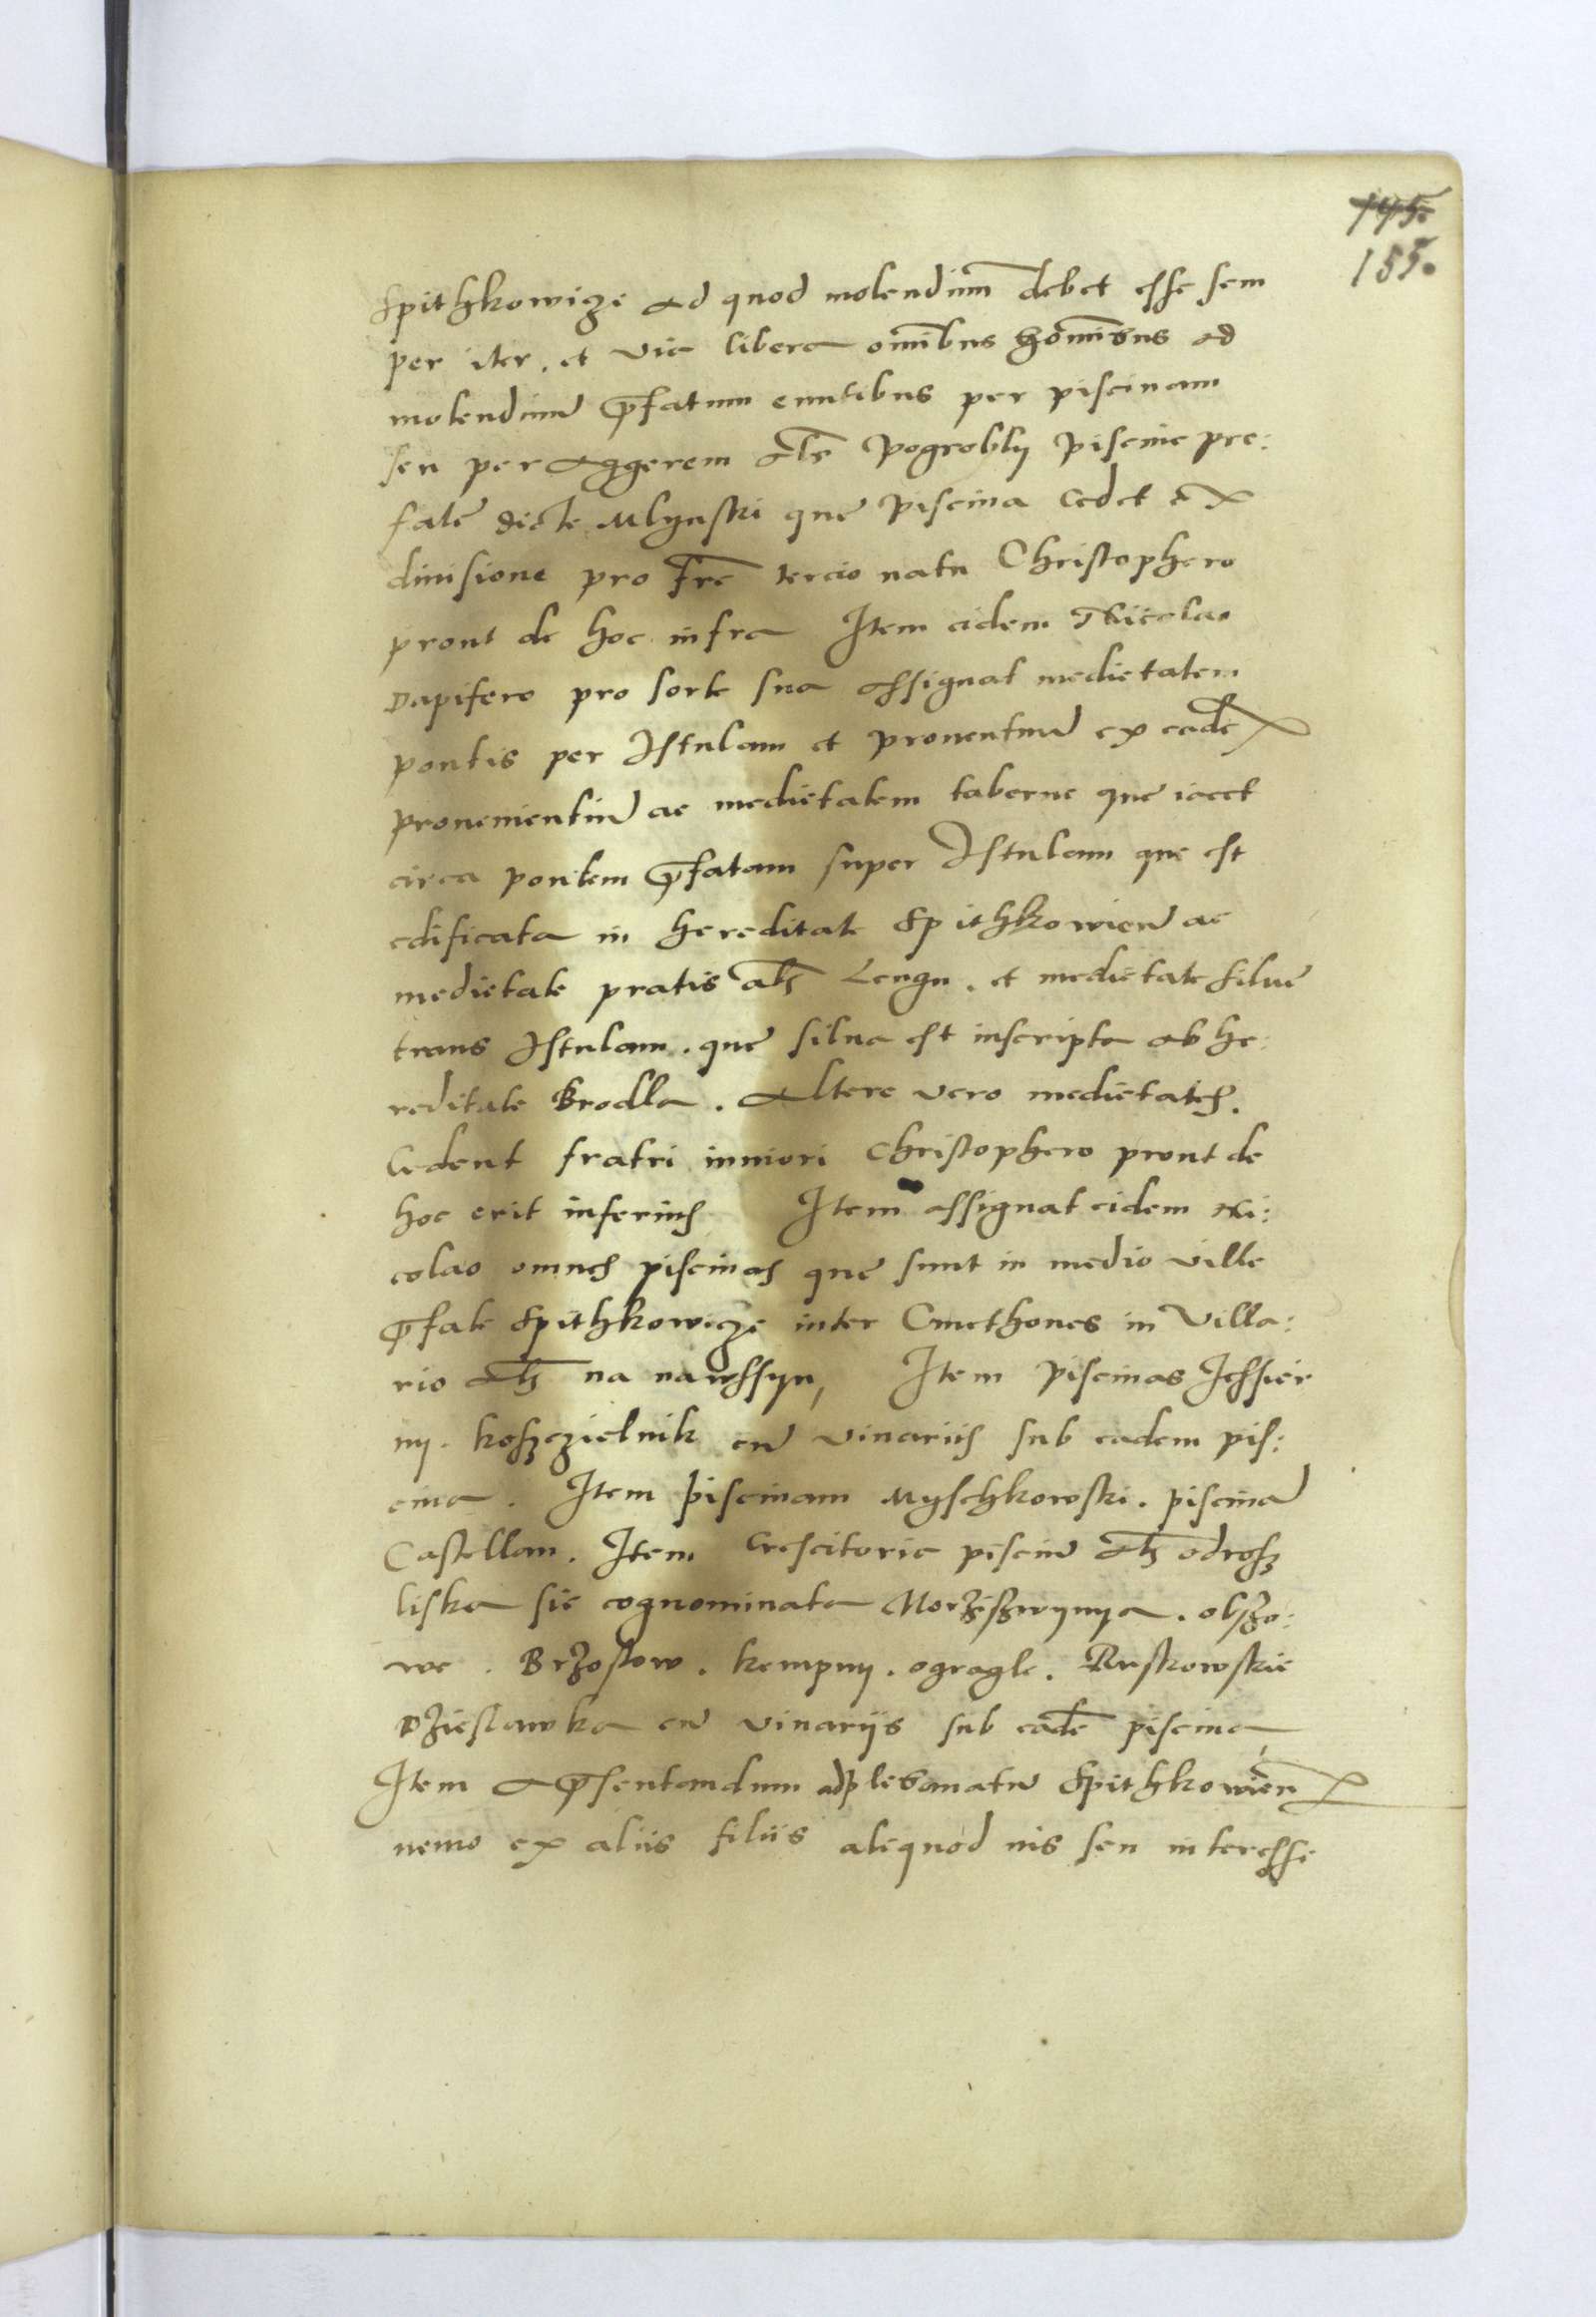 145
155.
Spithkowicze ad quod molendinũ debet esse sem
per iter. et via libera om̃ibus hom̃ibus ad
molendinũ p̃fatum euntibus per piscinam
seu per aggerem als̃ pogrobly piscine pre:
fate dicte Mlynski que piscina cedet ex
diuisione pro fr̃e tercio natu Christophero
prout de hoc infra Item eidem Nicolao
Dapifero pro sorte sua assignat medietatem
pontis per Istulam et prouentuũ ex eodẽ
prouenientiũ ac medietatem taberne que iacet
circa pontem p̃fatam super Istulam que est
edificata in hereditate Spithkowieñ ac
medietate pratis als̃ Lengu. et medietate silue
trans Istulam. que silua est inscripta ab he:
reditate Brodla. Altere vero medietates.
Cedent fratri iuniori Christophero prout de
hoc erit inferius Item assignat eidem Ni:
colao omnes piscinas que sunt in medio ville
p̃fate Spithkowicze inter Cmethones in Villa:
rio als̃ na nawssyu, Item piscinas Jessier
ny. koszczielnik cũ vinariis sub eadem pis:
cina. Item piscinam Myschkowski. piscinã
Castellan. Item Crescitoria pisciũ als̃ odrosz
liska sic cognominata Morziszwynya. olszo:
we. Brzostow. kempny. ogragle. Ruskowskie
Dziestawka cũ vinariis sub eadẽ piscina,
Item ad p̃sentandum ad plebanatũ Spithkowień
nemo ex aliis filiis aliquod ius seu interesse